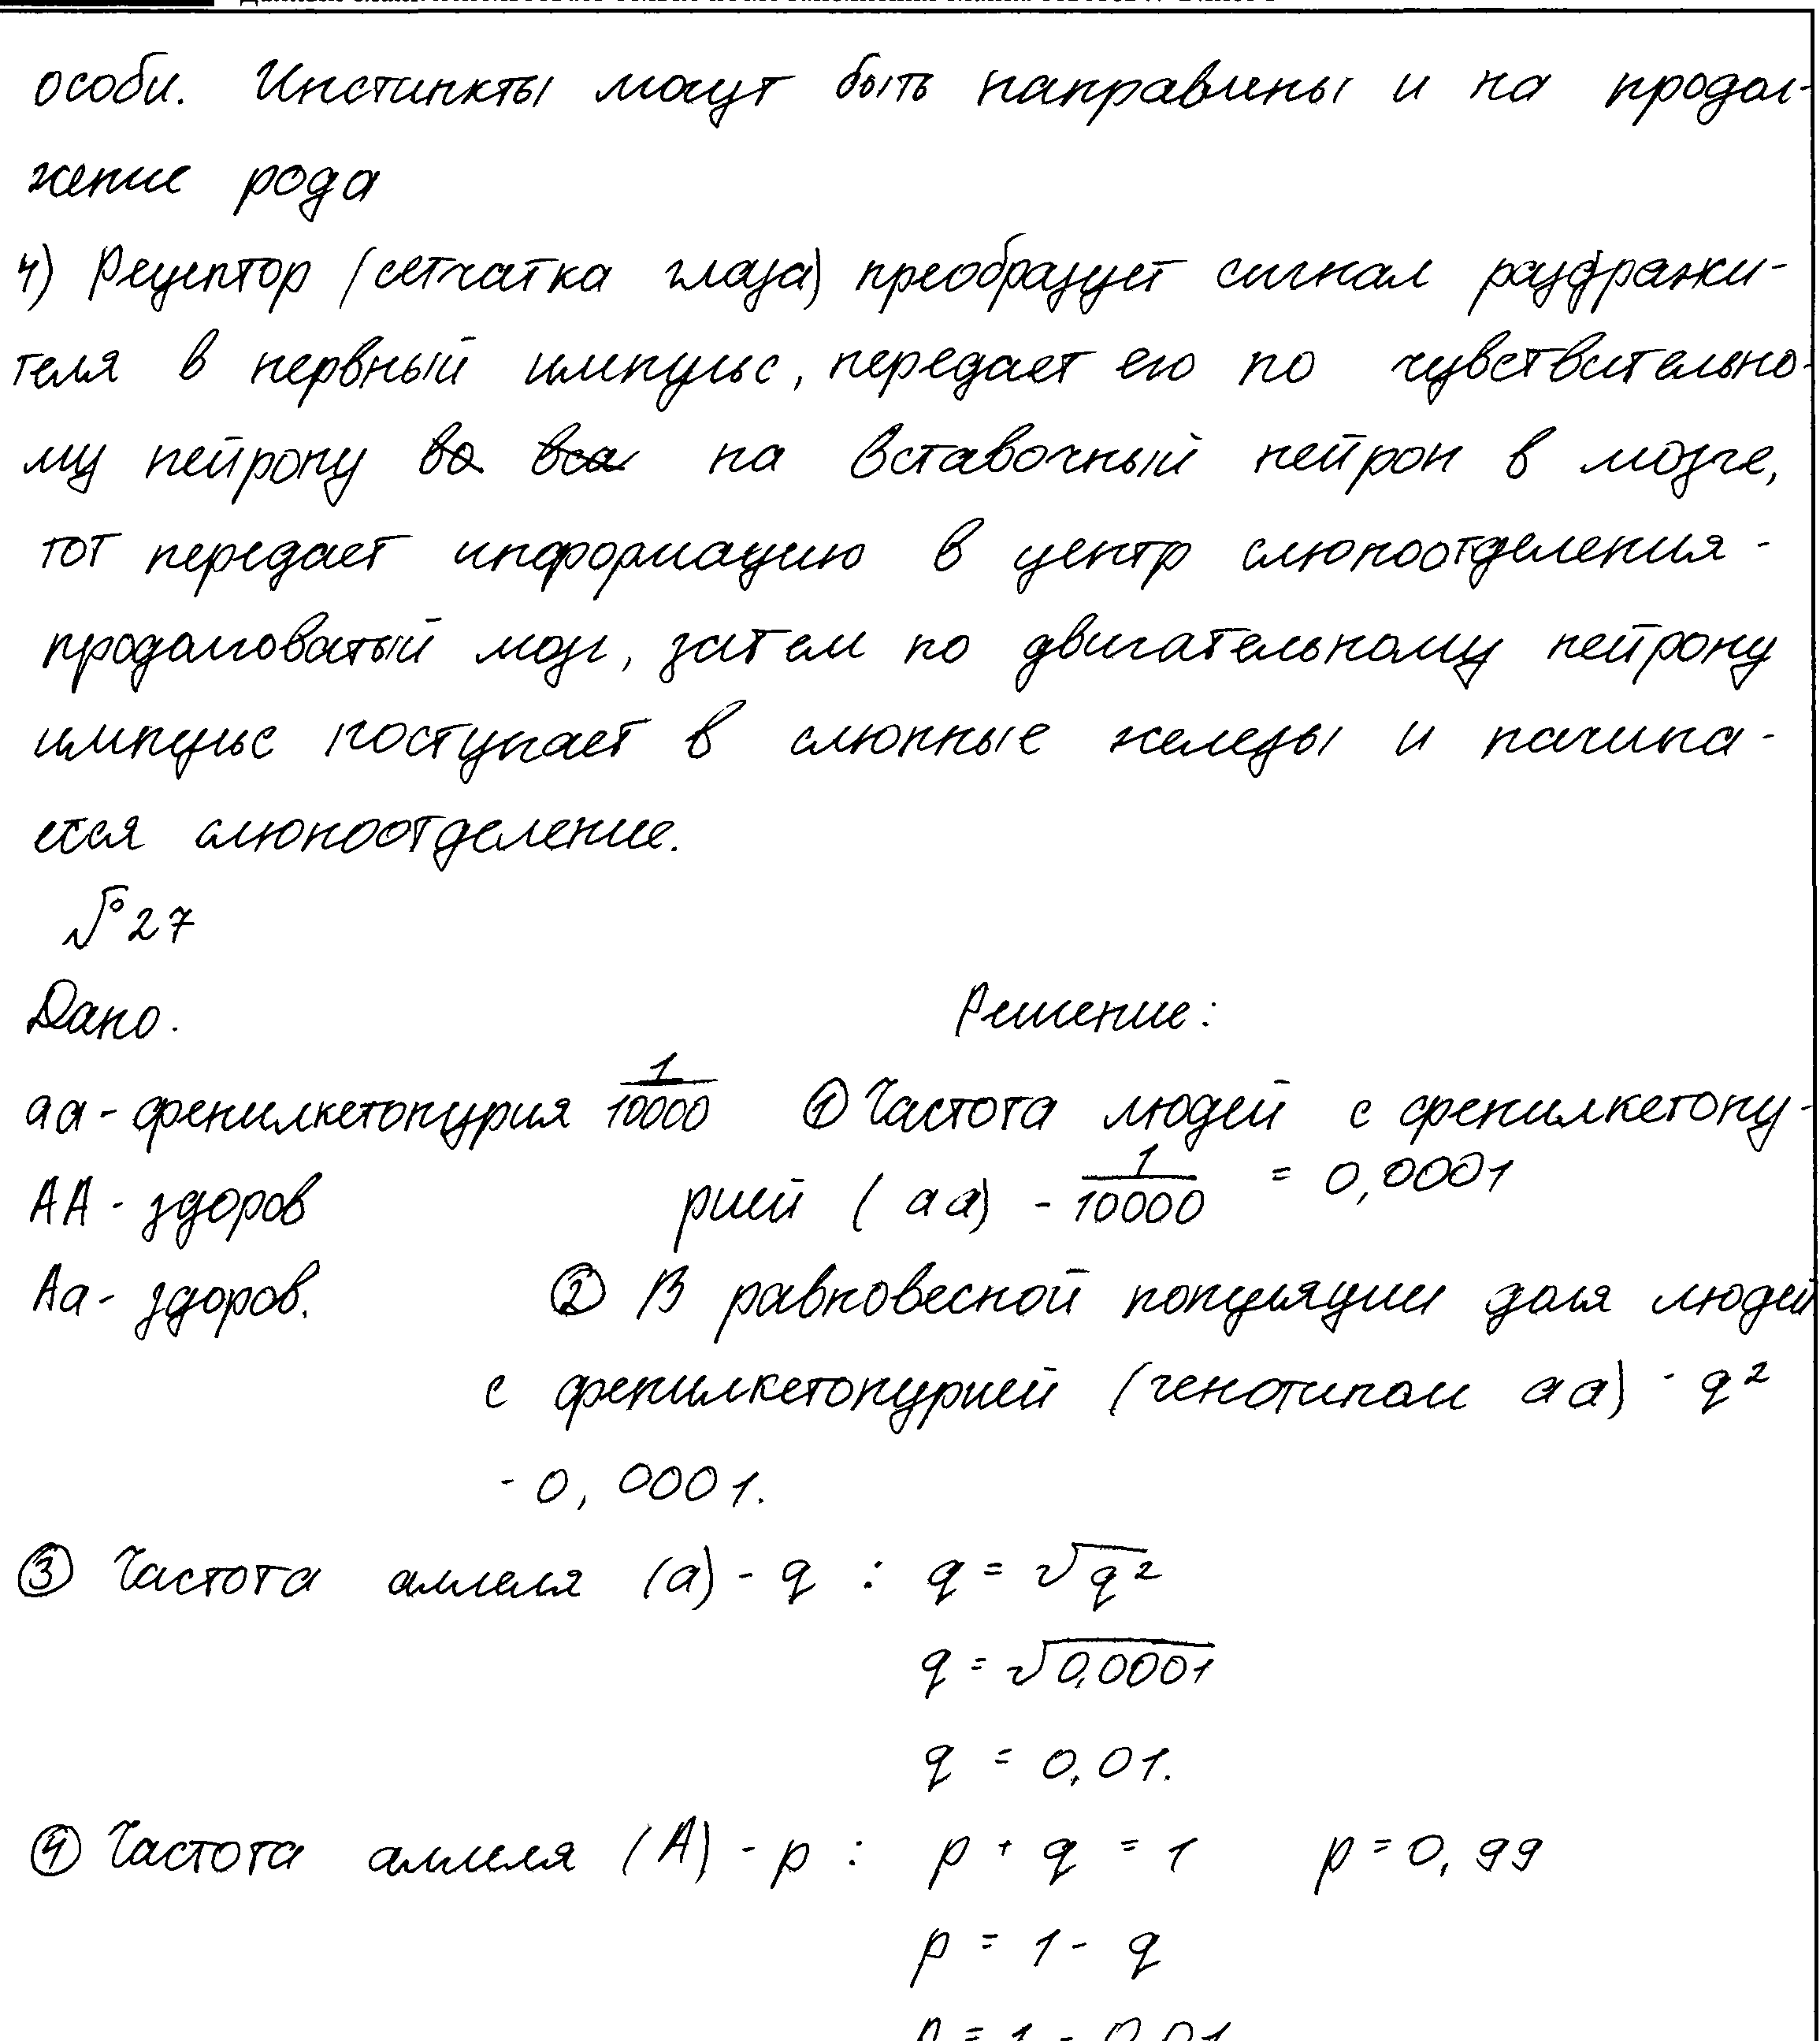 особи. Инстинкты могут быть направлены и на продол-
жение рода
4) Рецептор (сетчатка глаза) преобразует сигнал раздражи-
теля в нервный импульс, передает его по чувствительно-
му нейрону во вса на вставочный нейрон в мозге,
тот передает информацию в центр слюноотделения -
продолговатый мозг, затем по двигательному нейрону
импульс поступает в слюнные железы и начина-
ется слюноотделение.
№27
Дано. Решение:
aa - фенилкетонурия 1/10000 ① Частота людей с фенилкетону-
AA - здоров рией (aa) - 1/10000 = 0,0001
Aa - здоров. ② В равновесной популяции доля людей
с фенилкетонурией (генотипом aa) - q²
- 0,0001.
③ Частота аллеля (a) - q : q = √q²
q = √0,0001
q = 0,01.
④ Частота аллеля (A) - p : p + q = 1 p = 0,99
p = 1 - q
p = 1 - 0,01